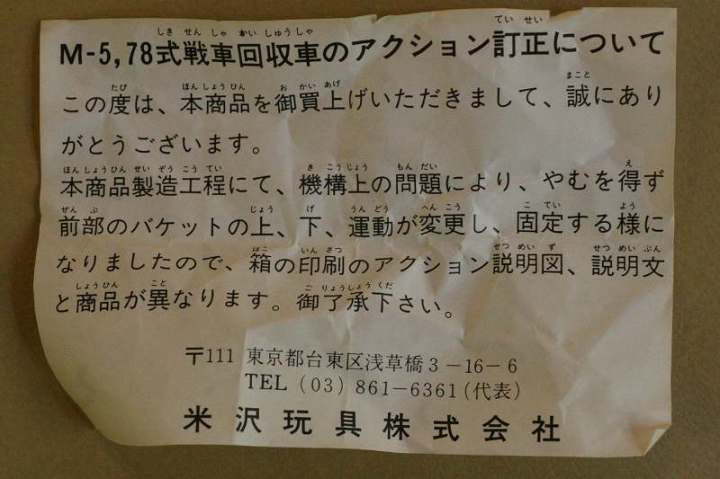 M-5,78式戦車回収車のアクション訂正について
この度は、本商品を御買上げいただきまして、誠にあり
がとうございます。
本商品製造工程にて、機構上の問題により、やむを得ず
前部のバケットの上、下、運動が変更し、固定する様に
なりましたので、箱の印刷のアクション説明図、説明文
と商品が異なります。御了承下さい。
〒111 東京都台東区浅草橋3-16-6
TEL (03) 861-6361(代表)
米沢玩具株式会社